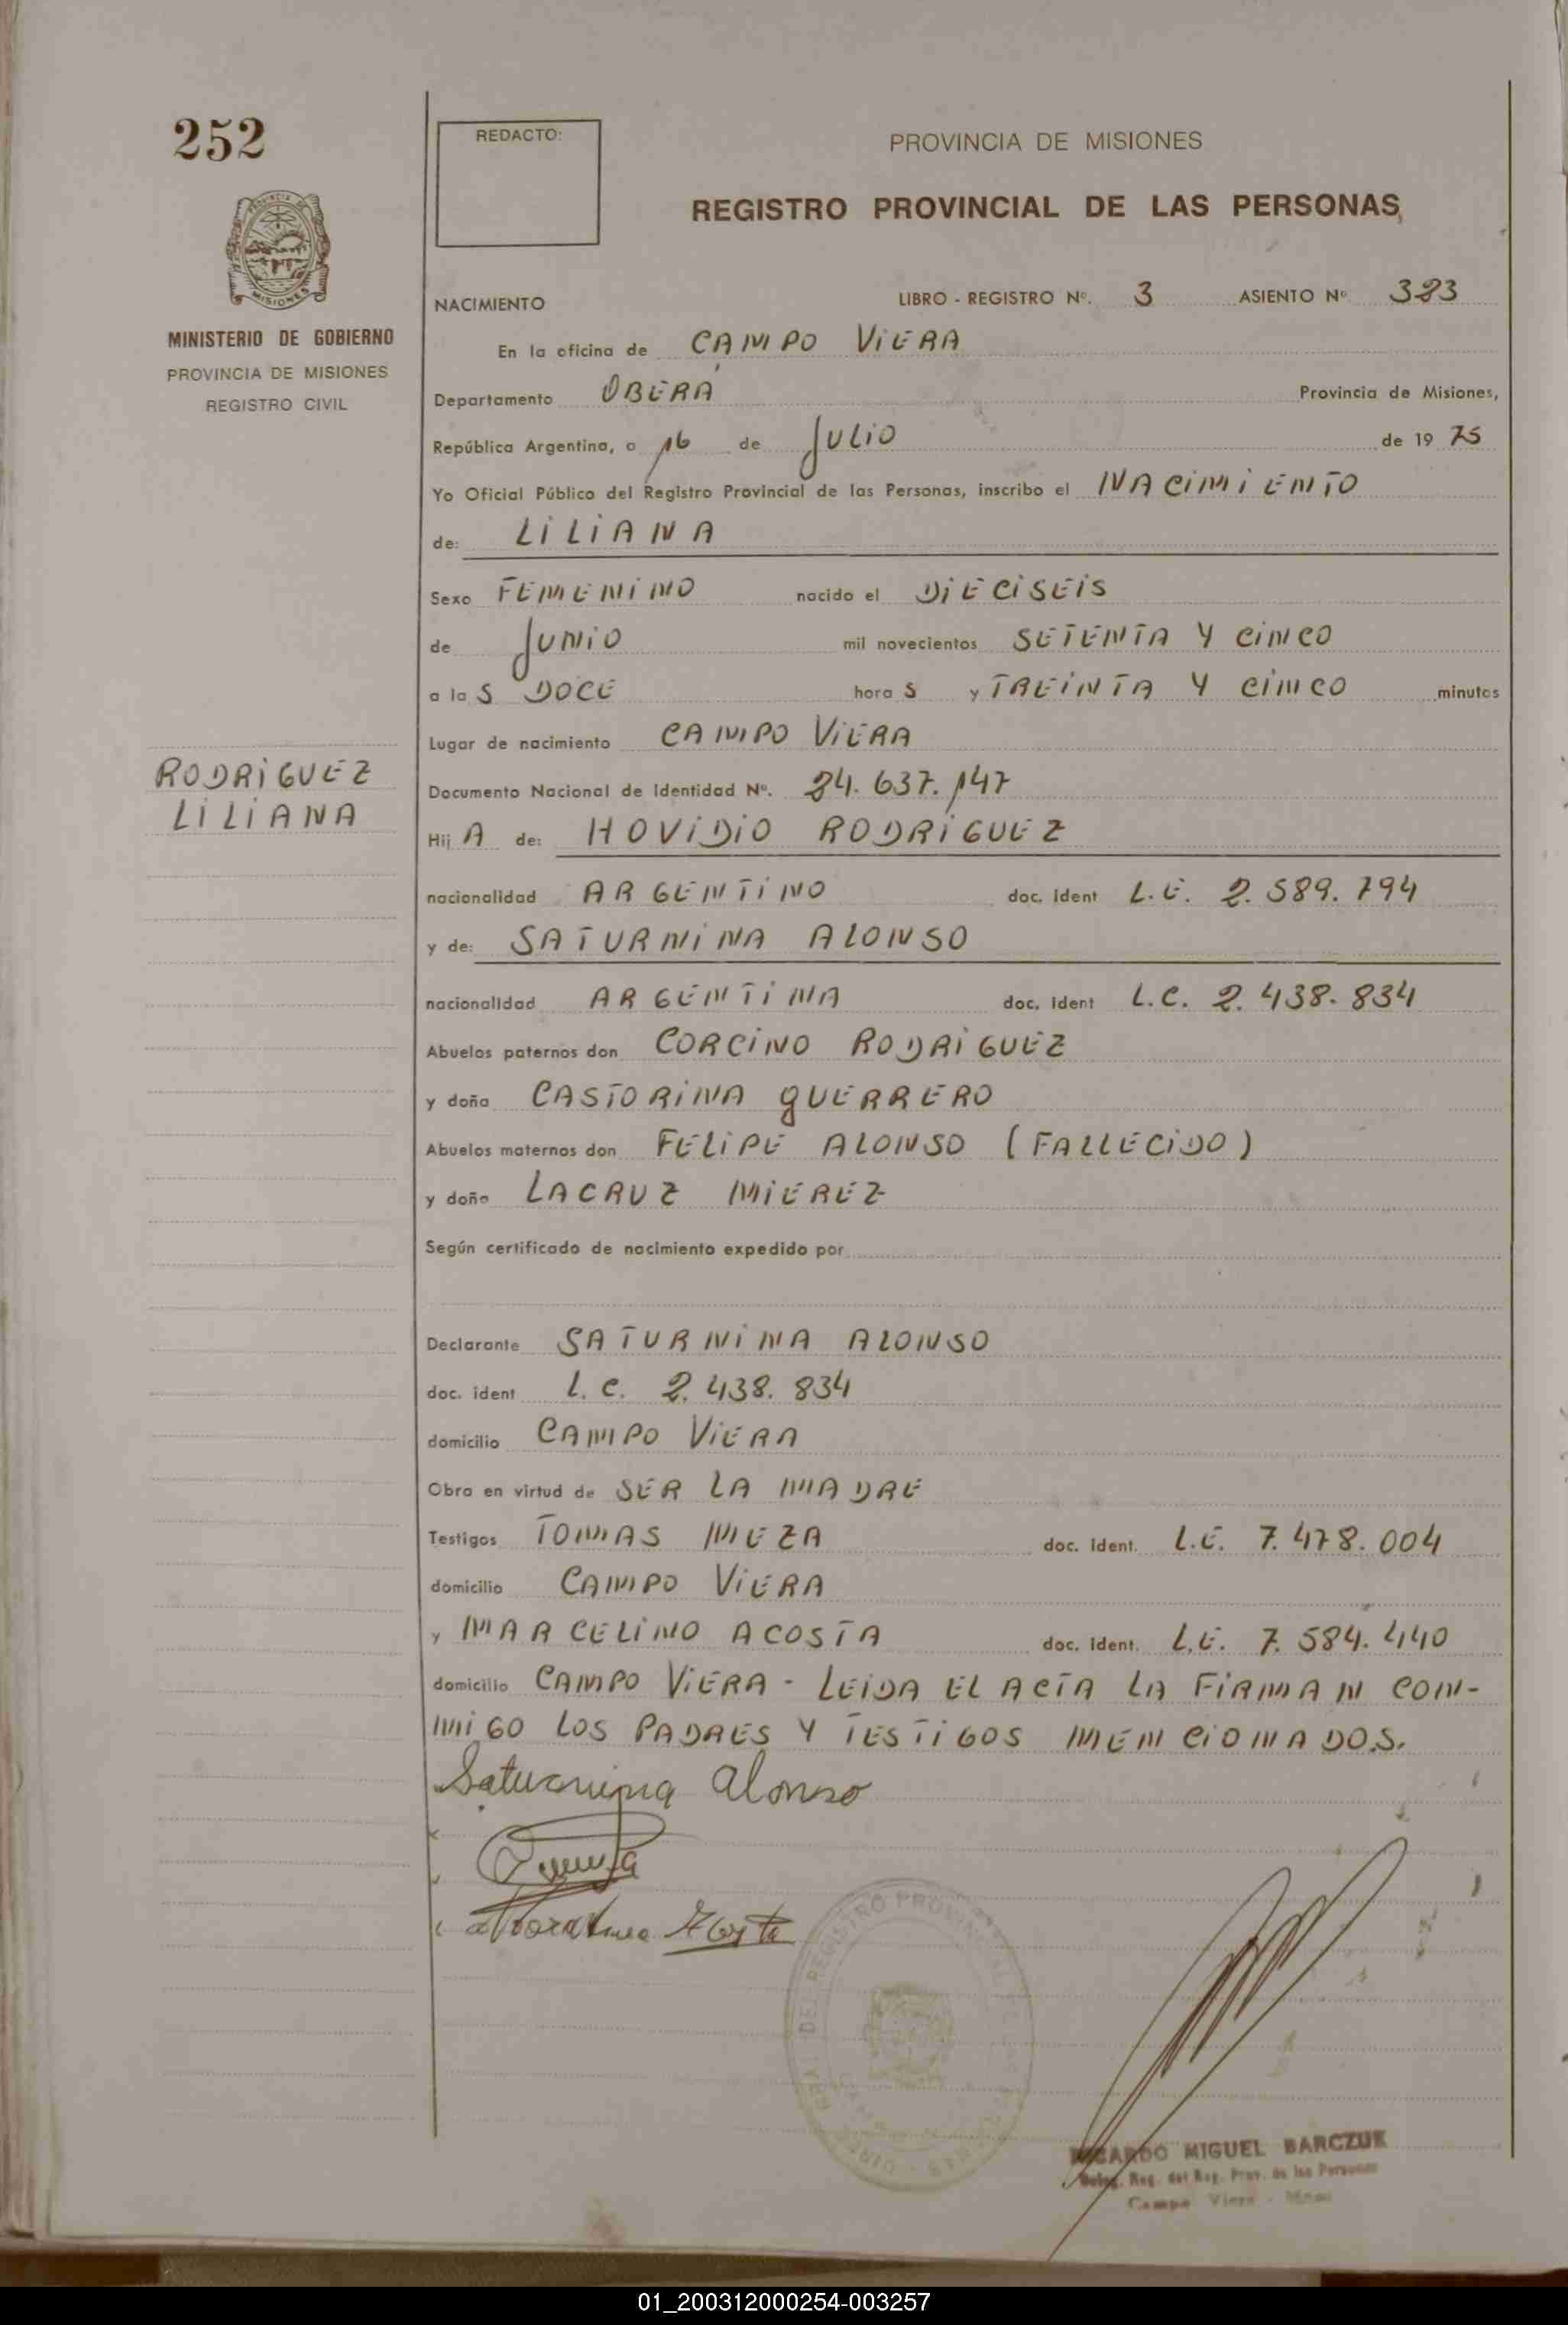 252
REDACTO:
PROVINCIA DE MISIONES
REGISTRO PROVINCIAL DE LAS PERSONAS
MISIONES
MINISTERIO DE GOBIERNO
PROVINCIA DE MISIONES
REGISTRO CIVIL
NACIMIENTO LIBRO - REGISTRO Nº. 3 ASIENTO Nº 383
En la oficina de CAMPO VIERA
Departamento OBERÁ Provincia de Misiones,
República Argentina, a 16 de JULIO de 19 75
Yo Oficial Público del Registro Provincial de las Personas, inscribo el NACIMIENTO
de: LILIANA
Sexo FEMENINO nacido el DIECISEIS
de JUNIO mil novecientos SETENTA Y CINCO
a la S DOCE hora S y TREINTA Y CINCO minutos
Lugar de nacimiento CAMPO VIERA
RODRIGUEZ
LILIANA
Documento Nacional de Identidad Nº. 24.637.147
Hij A de: HOVIDIO RODRIGUEZ
nacionalidad ARGENTINO doc. ident L.E. 2.589.794
y de: SATURNINA ALONSO
nacionalidad ARGENTINA doc. ident L.C. 2.438.834
Abuelos paternos don CORCINO RODRIGUEZ
y doña CASTORINA GUERRERO
Abuelos maternos don FELIPE ALONSO (FALLECIDO)
y doña LACRUZ MIEREZ
Según certificado de nacimiento expedido por
Declarante SATURNINA ALONSO
doc. ident L.C. 2.438.834
domicilio CAMPO VIERA
Obra en virtud de SER LA MADRE
Testigos TOMAS MEZA doc. ident. L.E. 7.478.004
domicilio CAMPO VIERA
y MARCELINO ACOSTA doc. ident. L.E. 7.584.440
domicilio CAMPO VIERA - LEIDA EL ACTA LA FIRMAN CON-
MIGO LOS PADRES Y TESTIGOS MENCIONADOS.
Saturnina Alonso
RICARDO MIGUEL BARCZUK
Deleg. Reg. del Reg. Prov. de las Personas
Campo Viera - Mnes
01_200312000254-003257